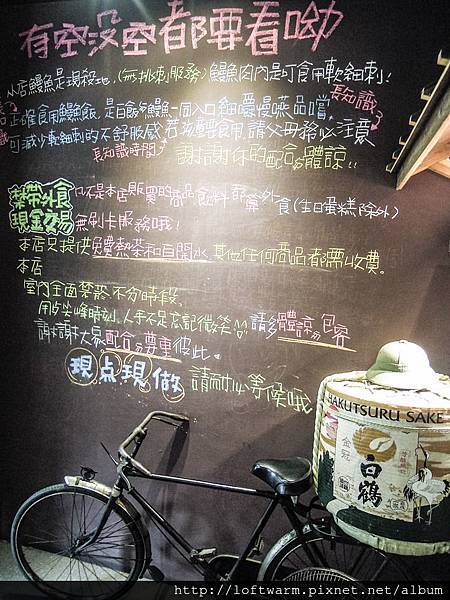 有空沒空都要看呦
本店鰻魚是現殺地,(無挑刺服務)鰻魚肉內是可食用軟細刺!
長知識
正確食用鰻魚飯,是白飯與鰻魚一個入口細嚼慢嚥品嚐,
可減少軟細刺的不舒服感 若孩童食用,請父母務必注意
長知識時間 謝謝你的配合與體諒!!
禁帶外食 只要不是本店販賣的商品飲料都算外食(生日蛋糕除外)
現金交易 無刷卡服務哦!
本店只提供免費熱茶和白開水,其他任何商品都需收費。
本店
室內全面禁菸,不分時段、
用餐尖峰時刻,人手不足忘記微笑 請多體諒与包容
謝謝大家配合与尊重彼此。
現点現做 請耐心等候哦
HAKUTSURU SAKE
金冠
白鶴
http://loftwarm.pixnet.net/album